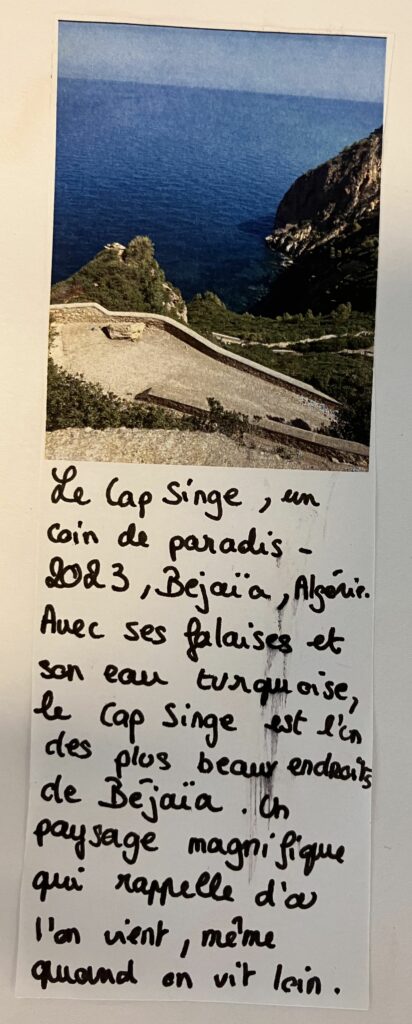 Le Cap Singe, un
coin de paradis -
2023, Bejaïa, Algérie.
Avec ses falaises et
son eau turquoise,
le Cap Singe est l'un
des plus beaux endroits
de Béjaïa. Un
paysage magnifique
qui rappelle d'où
l'on vient, même
quand on vit loin.